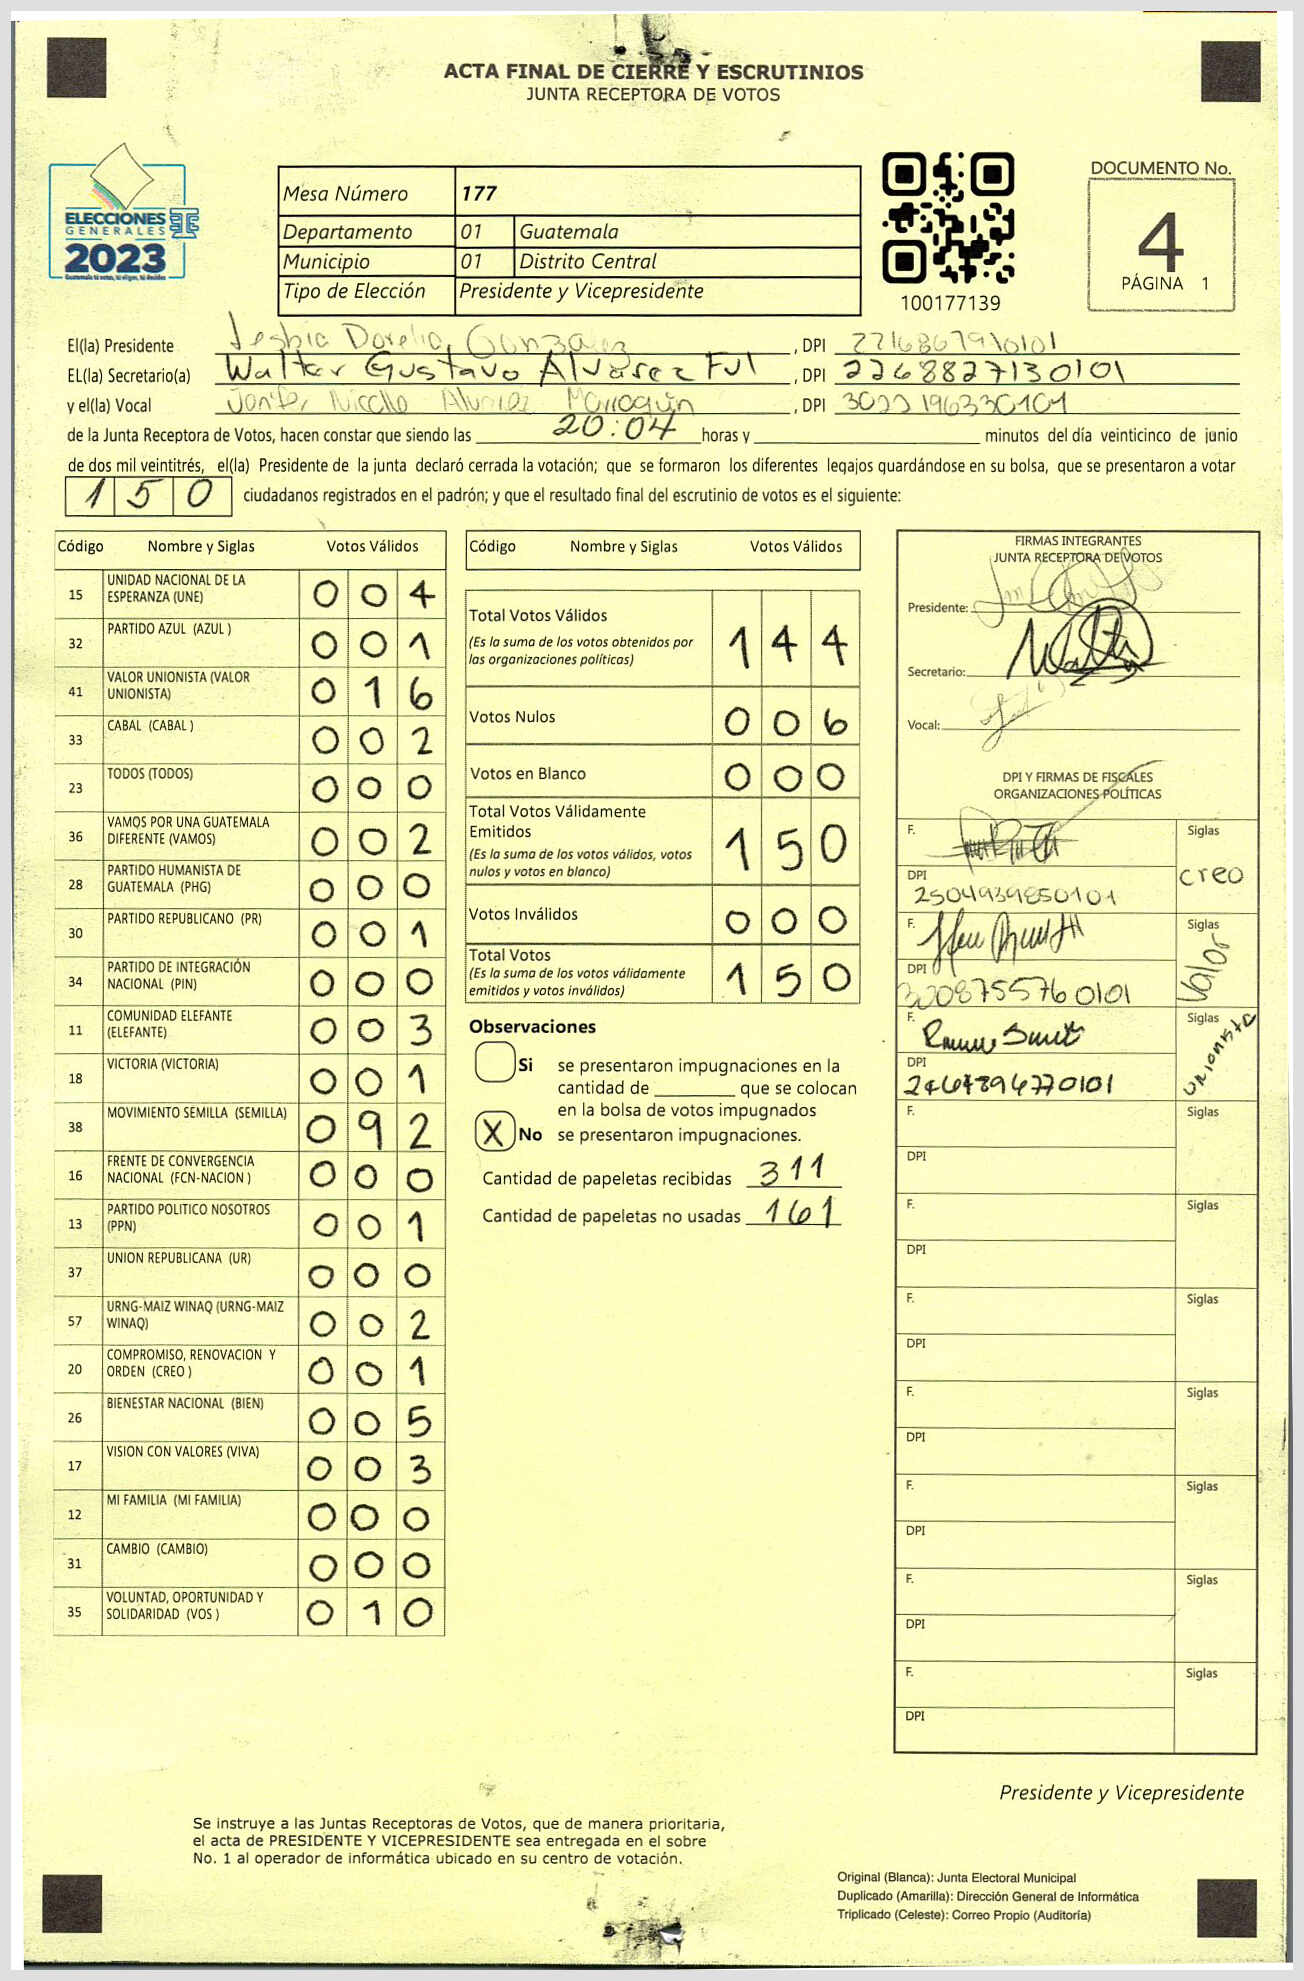 ACTA FINAL DE CIERRE Y ESCRUTINIOS
JUNTA RECEPTORA DE VOTOS
ELECCIONES
GENERALES
2023
Mesa Número 177
Departamento 01 Guatemala
Municipio 01 Distrito Central
Tipo de Elección Presidente y Vicepresidente
100177139
DOCUMENTO No.
4
PÁGINA 1
El(la) Presidente Lesbia Dorelia Gonzalez, DPI
EL(la) Secretario(a) Walter Gustavo Alvarez Ful, DPI 2268827130101
y el(la) Vocal Alvarez Marroquin, DPI
de la Junta Receptora de Votos, hacen constar que siendo las 20:04 horas y minutos del día veinticinco de junio
de dos mil veintitrés, el(la) Presidente de la junta declaró cerrada la votación; que se formaron los diferentes legajos guardándose en su bolsa, que se presentaron a votar
150 ciudadanos registrados en el padrón; y que el resultado final del escrutinio de votos es el siguiente:
Código Nombre y Siglas Votos Válidos
15 UNIDAD NACIONAL DE LA ESPERANZA (UNE) 004
32 PARTIDO AZUL (AZUL ) 001
41 VALOR UNIONISTA (VALOR UNIONISTA) 016
33 CABAL (CABAL ) 002
23 TODOS (TODOS) 000
36 VAMOS POR UNA GUATEMALA DIFERENTE (VAMOS) 002
28 PARTIDO HUMANISTA DE GUATEMALA (PHG) 000
30 PARTIDO REPUBLICANO (PR) 001
34 PARTIDO DE INTEGRACIÓN NACIONAL (PIN) 000
11 COMUNIDAD ELEFANTE (ELEFANTE) 003
18 VICTORIA (VICTORIA) 001
38 MOVIMIENTO SEMILLA (SEMILLA) 092
16 FRENTE DE CONVERGENCIA NACIONAL (FCN-NACION ) 000
13 PARTIDO POLITICO NOSOTROS (PPN) 001
37 UNION REPUBLICANA (UR) 000
57 URNG-MAIZ WINAQ (URNG-MAIZ WINAQ) 002
20 COMPROMISO, RENOVACION Y ORDEN (CREO ) 001
26 BIENESTAR NACIONAL (BIEN) 005
17 VISION CON VALORES (VIVA) 003
12 MI FAMILIA (MI FAMILIA) 000
31 CAMBIO (CAMBIO) 000
35 VOLUNTAD, OPORTUNIDAD Y SOLIDARIDAD (VOS ) 010
Código Nombre y Siglas Votos Válidos
Total Votos Válidos 144
(Es la suma de los votos obtenidos por
las organizaciones políticas)
Votos Nulos 006
Votos en Blanco 000
Total Votos Válidamente
Emitidos 150
(Es la suma de los votos válidos, votos
nulos y votos en blanco)
Votos Inválidos 000
Total Votos 150
(Es la suma de los votos válidamente
emitidos y votos inválidos)
Observaciones
Si se presentaron impugnaciones en la
cantidad de que se colocan
en la bolsa de votos impugnados
X No se presentaron impugnaciones.
Cantidad de papeletas recibidas 311
Cantidad de papeletas no usadas 161
FIRMAS INTEGRANTES
JUNTA RECEPTORA DE VOTOS
Presidente:
Secretario:
Vocal:
DPI Y FIRMAS DE FISCALES
ORGANIZACIONES POLÍTICAS
F. Siglas
creo
DPI
2504939850101
F. Siglas
Valor
DPI
3008755760101
F. Siglas
unionista
DPI
F. Siglas
DPI
F. Siglas
DPI
F. Siglas
DPI
F. Siglas
DPI
F. Siglas
DPI
F. Siglas
DPI
F. Siglas
DPI
Presidente y Vicepresidente
Se instruye a las Juntas Receptoras de Votos, que de manera prioritaria,
el acta de PRESIDENTE Y VICEPRESIDENTE sea entregada en el sobre
No. 1 al operador de informática ubicado en su centro de votación.
Original (Blanca): Junta Electoral Municipal
Duplicado (Amarilla): Dirección General de Informática
Triplicado (Celeste): Correo Propio (Auditoría)